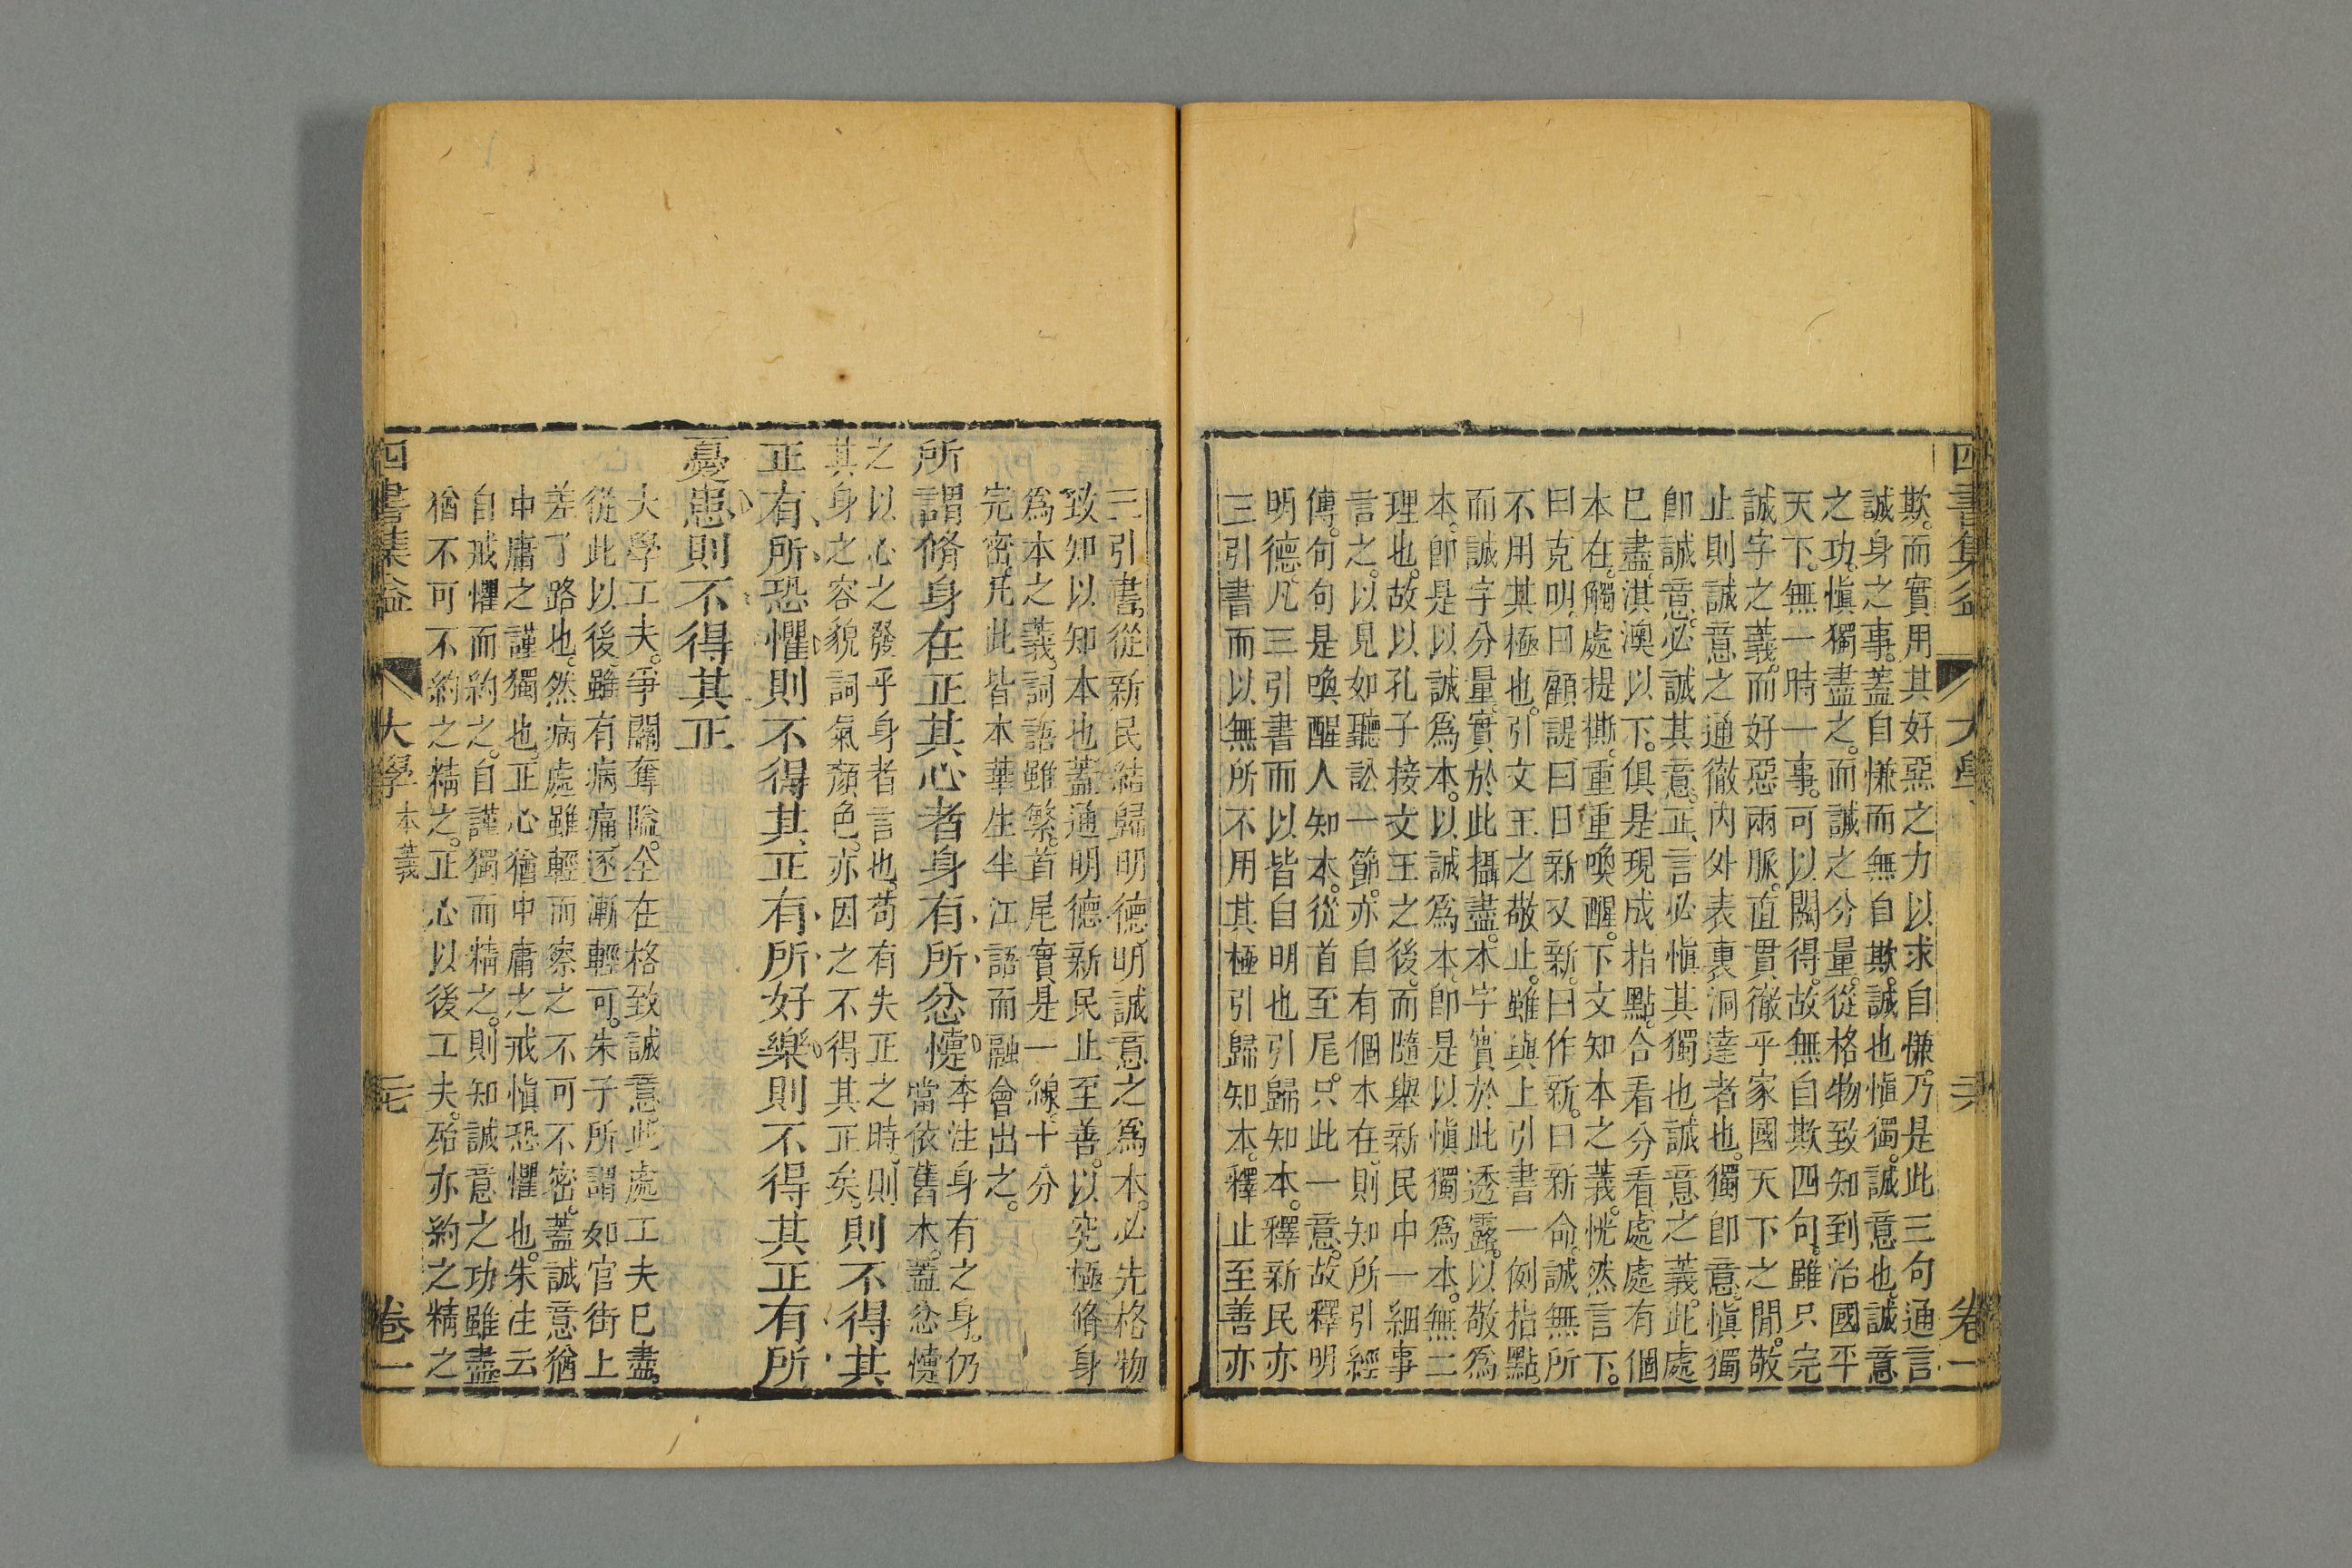 四書集益 大學 卷一
欺。而實用其好惡之力以求自慊。乃是此三句通言
誠身之事。蓋自慊而無自欺。誠也慎獨。誠意也。誠意
之功。慎獨盡之。而誠之分量。從格物致知到治國平
天下。無一時一事。可以闕得。故無自欺四句。雖只完
誠字之義。而好惡兩脈。直貫徹乎家國天下之閒。敬
止則誠意之通徹內外表裏洞達者也。獨即意。慎獨
即誠意。必誠其意。正言必慎其獨也誠意之義。此處
已盡。淇澳以下。俱是現成指點。合看分看。處處有個
本在。觸處提撕。重重喚醒。下文知本之義。恍然言下。
曰克明。曰顧諟曰日新又新。曰作新。曰新命。誠無所
不用其極也。引文王之敬止。雖與上引書一例指點。
而誠字分量。實於此攝盡。本字實於此透露。以敬爲
本。即是以誠爲本。以誠爲本。即是以慎獨爲本。無二
理也。故以孔子接文王之後。而隨舉新民中一細事
言之。以見如聽訟一節。亦自有個本在。則知所引經
傳。句句是喚醒人知本。從首至尾。只此一意。故釋明
明德。凡三引書而以皆自明也引歸知本。釋新民亦
三引書而以無所不用其極引歸知本。釋止至善亦
三引書。從新民結歸明德。明誠意之爲本。必先格物
致知以知本也。蓋通明德新民止至善。以究極脩身
爲本之義。詞語雖繁。首尾實是一線。十分
完密。凡此皆本華生半江語而融會出之。
所謂脩身在正其心者身有所忿懥
李注身有之身。仍
當依舊本。蓋忿懥
之以心之發乎身者言也。苟有失正之時。則
其身之容貌詞氣顏色。亦因之不得其正矣。
則不得其
正有所恐懼則不得其正有所好樂則不得其正有所
憂患則不得其正
大學工夫。爭關奪隘。全在格致誠意此處工夫已盡。
從此以後。雖有病痛。逐漸輕可。朱子所謂如官街上
差了路也。然病處雖輕而察之不可不密。蓋誠意猶
中庸之謹獨也。正心猶中庸之戒慎恐懼也。朱注云
自戒懼而約之。自謹獨而精之。則知誠意之功雖盡。
猶不可不約之精之。正心以後工夫。殆亦約之精之
四書集益 大學 本義 卷一